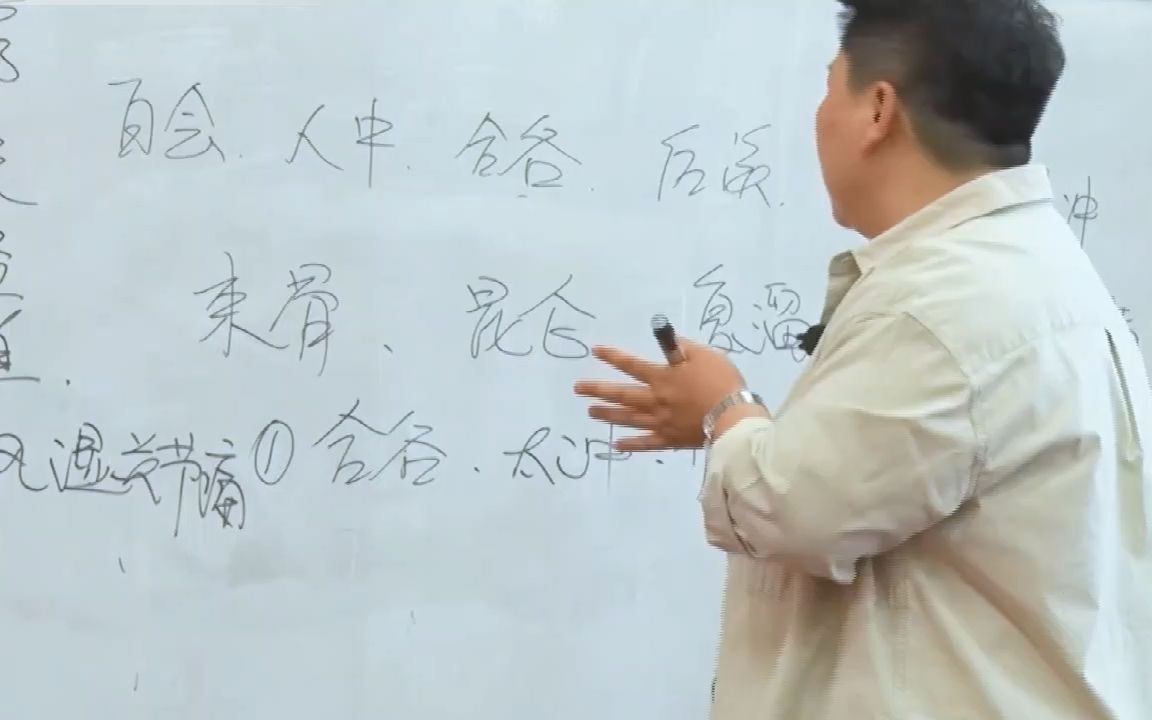 百会. 人中. 合谷. 后溪. 冲
束骨、昆仑 复溜
风湿关节痛 ① 合谷. 太冲.